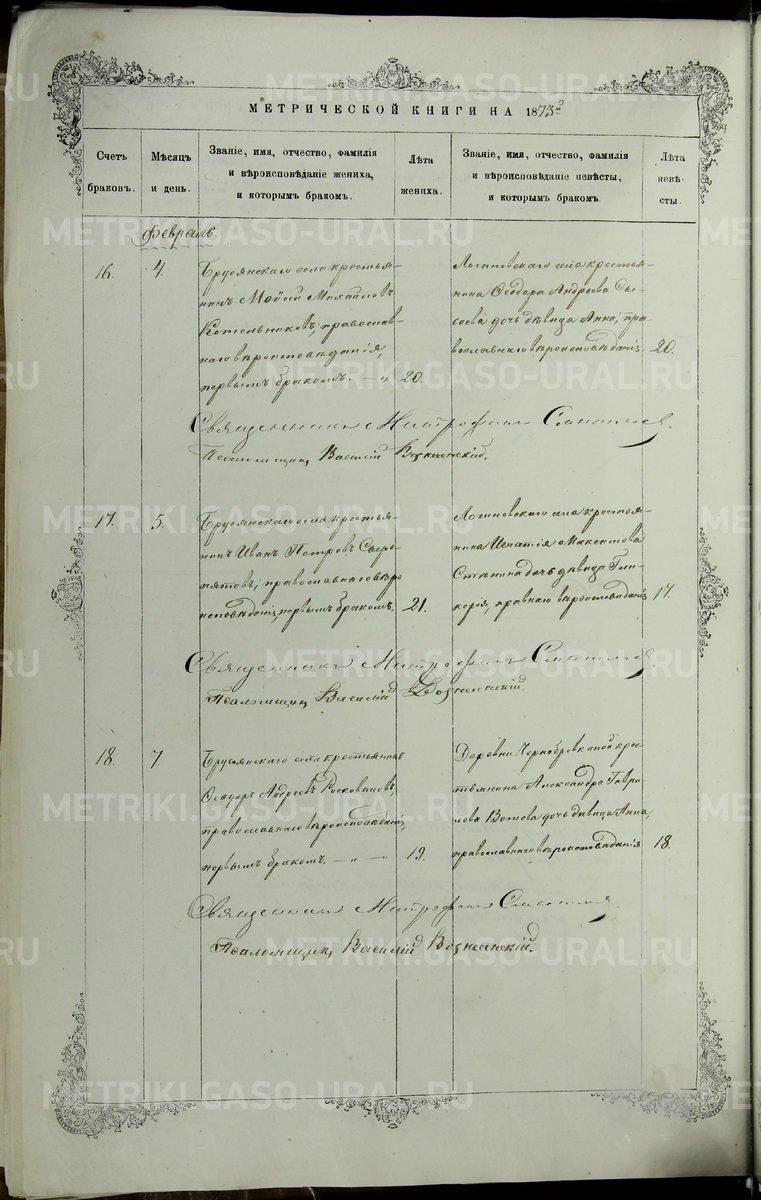 МЕТРИЧЕСКОЙ КНИГИ НА 1873
Счетъ браковъ.
Мѣсяцъ и день.
Званіе, имя, отчество, фамилія
и вѣроисповѣданіе жениха,
и которымъ бракомъ.
Лѣта жениха.
Званіе, имя, отчество, фамилія
и вѣроисповѣданіе невѣсты,
и которымъ бракомъ.
Лѣта невѣ-
сты.
Февраль.
16.
4.
Брусянскаго села крестья-
нинъ Мойсій Михайловъ
Котельниковъ, православ-
наго вѣроисповѣданія,
первымъ бракомъ. — „
20.
Логиновскаго села крестья-
нина Ѳеодора Андреева Сы-
соева дочь дѣвица Анна, пра-
вославнаго вѣроисповѣданія.
20.
Священникъ Митрофанъ
Псаломщикъ Василій Вознесенскій.
17.
5.
Брусянскаго села крестья-
нинъ Иванъ Петровъ Сыро-
пятовъ, православнаго вѣро
исповѣданія, первымъ бракомъ.
21.
Логиновскаго села крестья-
нина Игнатія Максимова
дочь дѣвица Гли-
керія, правнаго вѣроисповѣданія
17.
Священникъ Митрофанъ
Псаломщикъ Василій Вознесенскій
18.
7.
Брусянскаго села крестьянинъ
Ѳеодоръ Андреевъ
православнаго вѣроисповѣданія,
первымъ бракомъ. — „ —
19.
Деревни Чернобровкиной крес
тьянина Александра Гаври-
лова дочь дѣвица Анна,
православнаго вѣроисповѣданія
18.
Священникъ Митрофанъ
Псаломщикъ Василій Вознесенскій.
METRIKI.GASO-URAL.RU